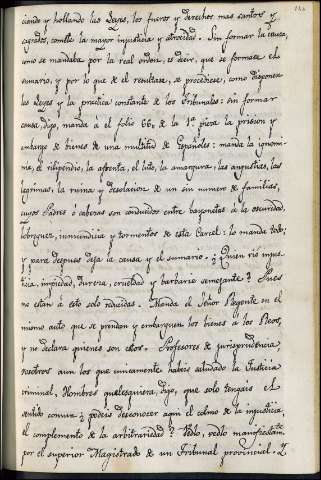 ciando y hollando las Leyes, los fueros y derechos mas santos y
sagrados, comete la mayor injusticia y atrocidad. Sin formar la causa,
como se mandaba por la real orden, es decir, que se formase el
sumario, y por lo que de el resultase, se procediese, como disponen
las Leyes y la practica constante de los Tribunales: sin formar
causa, digo, manda á el folio 66, de la 1ª pieza la prision y
embargo de bienes de una multitud de Españoles: manda la ignomi-
nia, el vilipendio, la afrenta, el luto, la amargura, las angustias, las
lagrimas, la ruina y desolacion de un sin numero de familias,
cuyos Padres ó cabezas son conducidos entre bayonetas á la oscuridad,
lobreguez, inmundicia y tormentos de esta Carcel: lo manda todo;
y para despues deja la causa y el sumario. ¿Quien vio injus-
ticia, impiedad, dureza, crueldad y barbarie semejante? Pues
no estan á esto solo reducidas. Manda el Señor Regente en el
mismo auto que se prendan y embarguen los bienes á los Reos,
y no declara quienes son estos. Profesores de jurisprudencia,
vosotros aun los que unicamente habeis saludado la Justicia
criminal, Hombres qualesquiera, digo, que solo tengais el
sentido comun ¿podeis desconocer aqui el colmo de la injusticia,
el complemento de la arbitrariedad? Vedlo, vedlo manifiestamte
por el superior Magistrado de un Tribunal provincial. Y